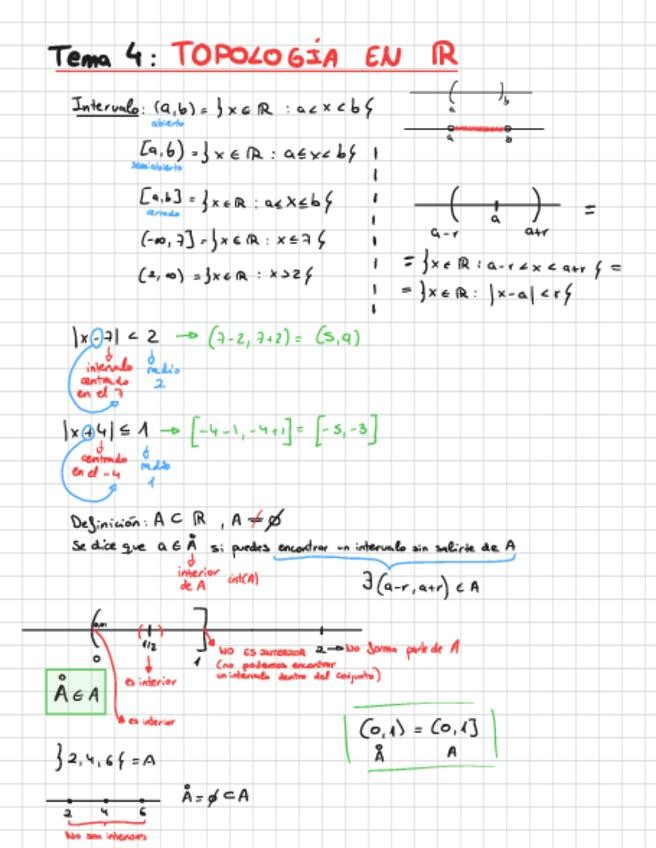 Tema 4: TOPOLOGÍA EN ℝ
Intervalo: (a,b) = }x ∈ ℝ : a < x < b{
abierto
[a,b) = }x ∈ ℝ : a ≤ x < b{
semiabierto
[a,b] = }x ∈ ℝ : a ≤ x ≤ b{
cerrado
(-∞, 7] = }x ∈ ℝ : x ≤ 7{
(2, ∞) = }x ∈ ℝ : x > 2{
( )
a b
a b
( ) =
a-r a a+r
= }x ∈ ℝ : a-r < x < a+r{ =
= }x ∈ ℝ : |x-a| < r{
|x-7| < 2 → (7-2, 7+2) = (5, 9)
intervalo centrado en el 7
radio 2
|x+4| ≤ 1 → [-4-1, -4+1] = [-5, -3]
centrado en el -4
radio 1
Definición: A ⊂ ℝ , A ≠ ∅
Se dice que a ∈ Å si puedes encontrar un intervalo sin salirte de A
interior de A
int(A)
∃(a-r, a+r) ⊂ A
0 1/2 1 2 → No forma parte de A
NO ES INTERIOR
(no podemos encontrar
un intervalo dentro del conjunto)
es interior
Å ∈ A
es interior
(0,1) = (0,1]
Å A
}2,4,6{ = A
2 4 6
Å = ∅ ⊂ A
No son interiores